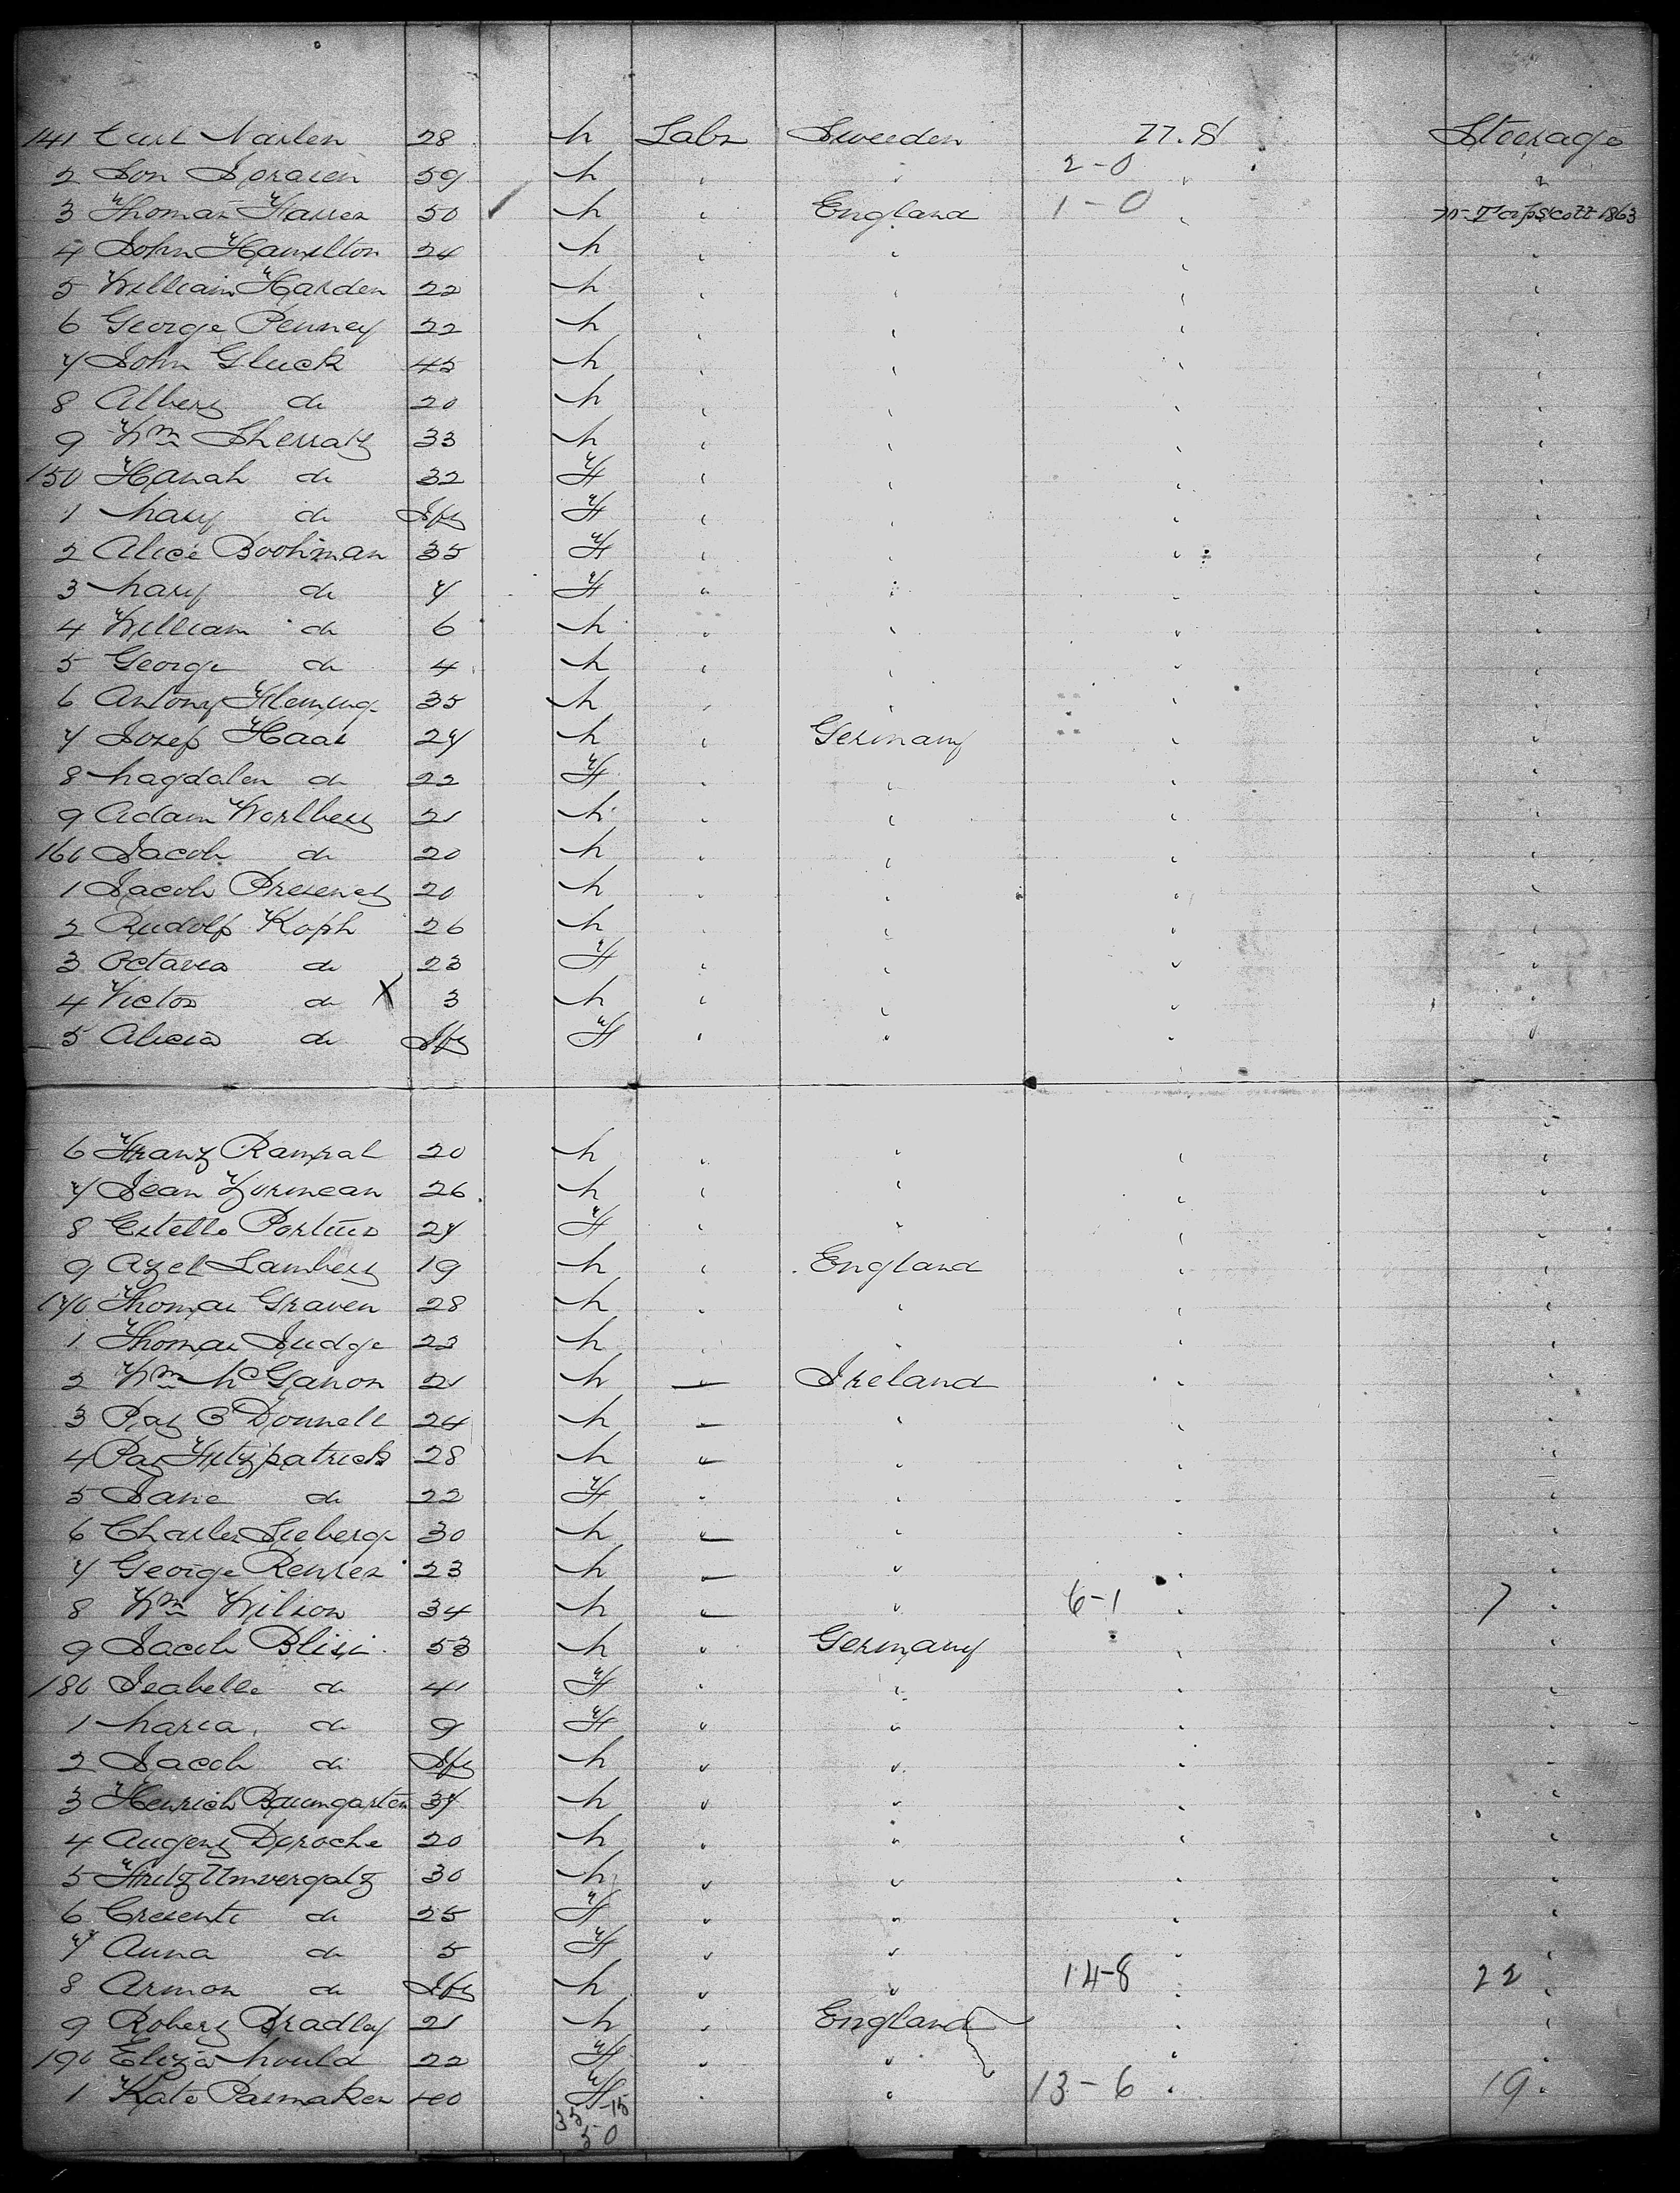 141 Carl Narlen 28 M Labr Sweeden U.S. Steerage
2 Jon 59 M " " 2-0 " "
3 Thomas Harrer 50 M " England 1-0 " W-Tapscott 1863
4 John Hamilton 24 M " " " "
5 William Harden 22 M " " " "
6 George Penney 22 M " " " "
7 John Gluck 45 M " " " "
8 Albert do 20 M " " " "
9 Wm Sherratt 33 M " " " "
150 Hanah do 32 F " " " "
1 Mary do Inft F " " " "
2 Alice Boohman 35 F " " " "
3 Mary do 7 F " " " "
4 William do 6 M " " " "
5 George do 4 M " " " "
6 Antony Fleming 35 M " " " "
7 Josef Haas 27 M " Germany " "
8 Magdalen do 22 F " " " "
9 Adam Worlbert 21 M " " " "
160 Jacob do 20 M " " " "
1 Jacob 20 M " " " "
2 Rudolf Koph 26 M " " " "
3 Octavia do 23 F " " " "
4 Victor do X 3 M " " " "
5 Alicia do Inft F " " " "
6 Franz Rampal 20 M " " " "
7 Jean 26 M " " " "
8 Estella 27 F " " " "
9 Azel Lambert 19 M " England " "
170 Thomas Graven 28 M " " " "
1 Thomas Judge 22 M " " " "
2 Wm McGanon 21 M " Ireland " "
3 Pat O'Donnell 24 M " " " "
4 Pat Fitzpatrick 28 M " " " "
5 Jane do 22 F " " " "
6 Charles Sieberg 30 M " " " "
7 George Renser 23 M " " " "
8 Wm Wilson 34 M " " 6-1 " 7 "
9 Jacob Blisi 53 M " Germany " "
180 Isabella do 41 F " " " "
1 Maria do 9 F " " " "
2 Jacob do Inft M " " " "
3 Henrich Baumgarten 37 M " " " "
4 Augent Deroche 20 M " " " "
5 Fritz Unvergatz 30 M " " " "
6 Cresente do 25 F " " " "
7 Anna do 5 F " " " "
8 Armon do Inft M " " 14-8 " 22 "
9 Robert Bradley 21 M " England " "
190 Eliza Mould 22 F " " " "
1 Kate Pasmaker 40 F " " 13-6 " 19 "
35-15
5 0